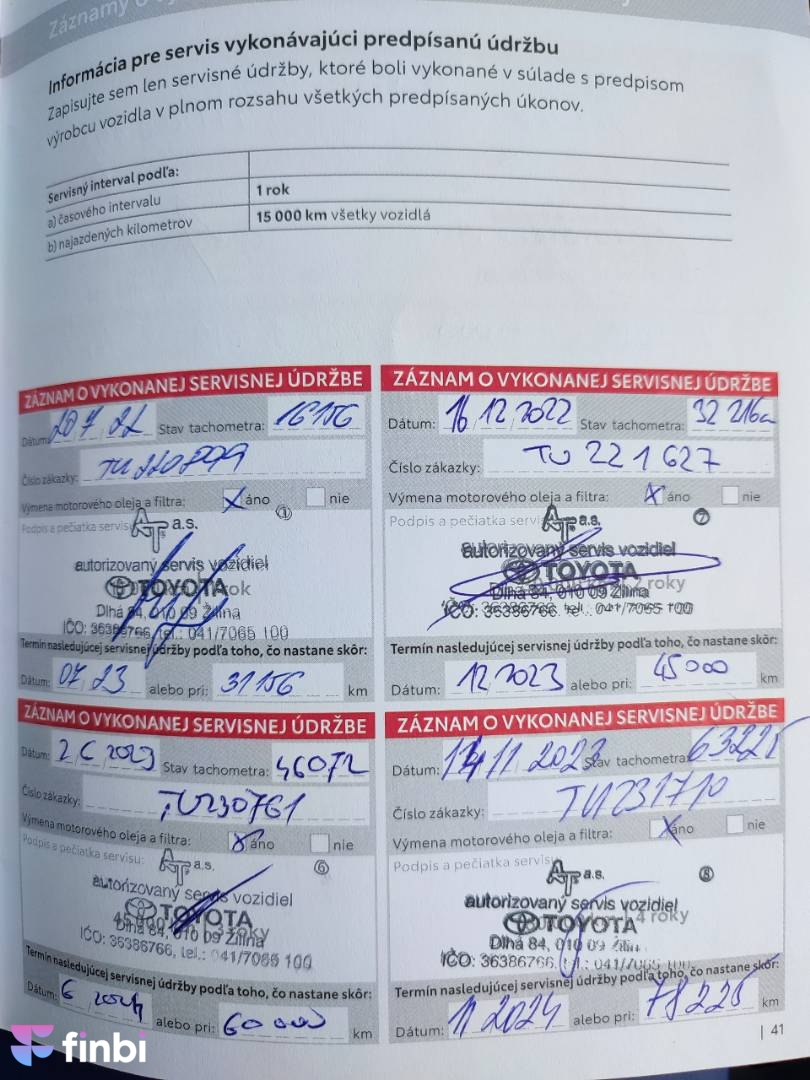 Záznamy o
Informácia pre servis vykonávajúci predpísanú údržbu
Zapisujte sem len servisné údržby, ktoré boli vykonané v súlade s predpisom
výrobcu vozidla v plnom rozsahu všetkých predpísaných úkonov.
Servisný interval podľa:
a) časového intervalu 1 rok
b) najazdených kilometrov 15 000 km všetky vozidlá
ZÁZNAM O VYKONANEJ SERVISNEJ ÚDRŽBE
Dátum: 20 7 22 Stav tachometra: 16156
Číslo zákazky: TU220899
Výmena motorového oleja a filtra: X áno nie
Podpis a pečiatka servisu
AT a.s. 1
autorizovaný servis vozidiel
TOYOTA rok
Dlhá 84, 010 09 Žilina
IČO: 36386766, tel.: 041/7065 100
Termín nasledujúcej servisnej údržby podľa toho, čo nastane skôr:
Dátum: 07 23 alebo pri: 31156 km
ZÁZNAM O VYKONANEJ SERVISNEJ ÚDRŽBE
Dátum: 16 12 2022 Stav tachometra: 32 216
Číslo zákazky: TU 221627
Výmena motorového oleja a filtra: X áno nie
Podpis a pečiatka servi
AT a.s.
autorizovaný servis vozidiel
TOYOTA 2 roky
Dlhá 84, 010 09 Žilina
IČO: 36386766, tel.: 041/7065 100
Termín nasledujúcej servisnej údržby podľa toho, čo nastane skôr:
Dátum: 12 2023 alebo pri: 45000 km
ZÁZNAM O VYKONANEJ SERVISNEJ ÚDRŽBE
Dátum: 2 6 2023 Stav tachometra: 46072
Číslo zákazky: TU230761
Výmena motorového oleja a filtra: X áno nie
Podpis a pečiatka servisu:
AT a.s. 6
autorizovaný servis vozidiel
TOYOTA 3 roky
Dlhá 84, 010 09 Žilina
IČO: 36386766, tel.: 041/7065 100
Termín nasledujúcej servisnej údržby podľa toho, čo nastane skôr:
Dátum: 6 2024 alebo pri: 60000 km
ZÁZNAM O VYKONANEJ SERVISNEJ ÚDRŽBE
Dátum: 14 11 2023 Stav tachometra: 63225
Číslo zákazky: TU231710
Výmena motorového oleja a filtra: X áno nie
Podpis a pečiatka servisu
AT a.s. 8
autorizovaný servis vozidiel
TOYOTA 4 roky
Dlhá 84, 010 09 Žilina
IČO: 36386766, tel.: 041/7065 100
Termín nasledujúcej servisnej údržby podľa toho, čo nastane skôr:
Dátum: 11 2024 alebo pri: 78225 km
| 41
finbi